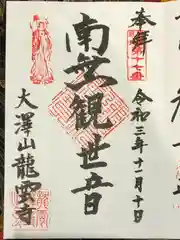 奉拝
令和三年十一月十日
南無観世音
大澤山龍雲寺